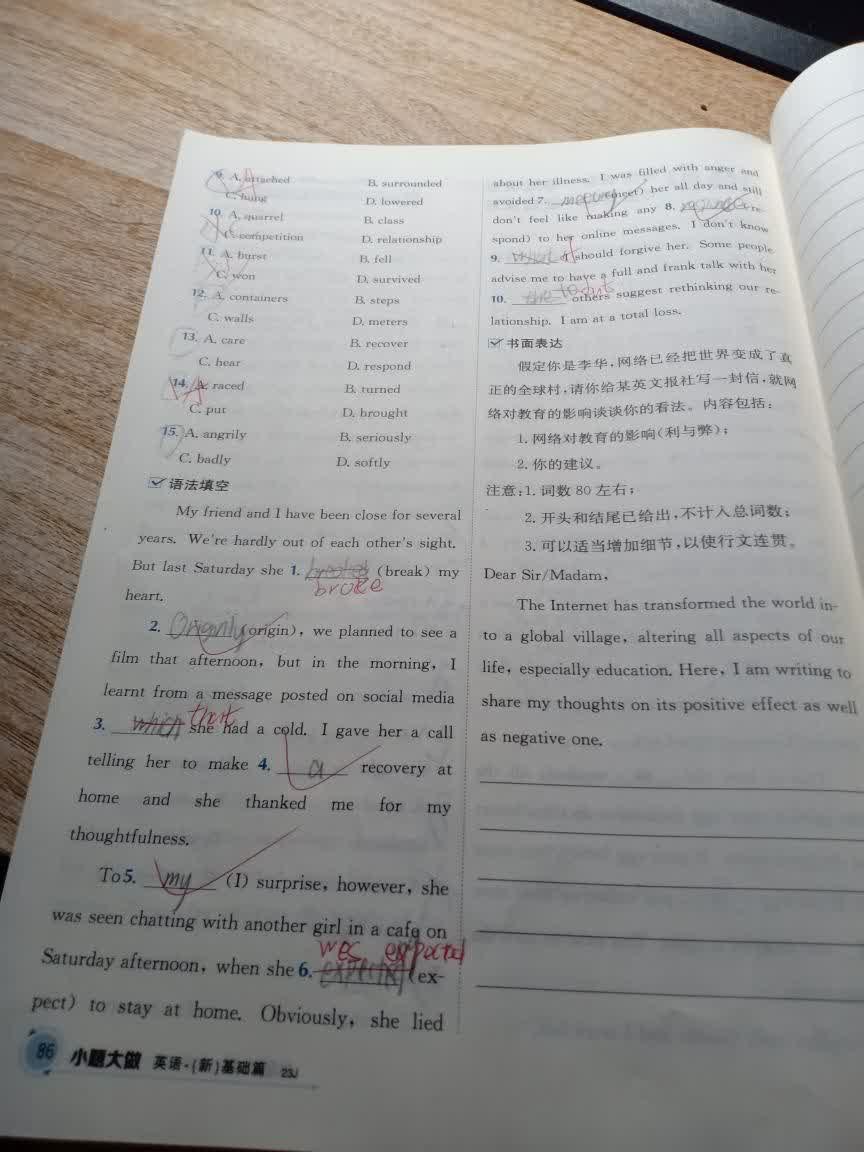 9. A. attached B. surrounded
C. hung D. lowered
10. A. quarrel B. class
C. competition D. relationship
11. A. burst B. fell
C. won D. survived
12. A. containers B. steps
C. walls D. meters
13. A. care B. recover
C. hear D. respond
14. A. raced B. turned
C. put D. brought
15. A. angrily B. seriously
C. badly D. softly
语法填空
My friend and I have been close for several
years. We're hardly out of each other's sight.
But last Saturday she 1. (break) my
broke
heart.
2. (origin), we planned to see a
film that afternoon, but in the morning, I
learnt from a message posted on social media
3. which that she had a cold. I gave her a call
telling her to make 4. a recovery at
home and she thanked me for my
thoughtfulness.
To 5. my (I) surprise, however, she
was seen chatting with another girl in a cafe on
Saturday afternoon, when she 6. expected (ex-
pect) to stay at home. Obviously, she lied
86 小题大做 英语·(新)基础篇 23J
about her illness. I was filled with anger and
avoided 7. meeting (meet) her all day and still
don't feel like making any 8. (re-
spond) to her online messages. I don't know
9. I should forgive her. Some people
advise me to have a full and frank talk with her
10. others suggest rethinking our re-
lationship. I am at a total loss.
书面表达
假定你是李华,网络已经把世界变成了真
正的全球村,请你给某英文报社写一封信,就网
络对教育的影响谈谈你的看法。内容包括:
1. 网络对教育的影响(利与弊);
2. 你的建议。
注意:1. 词数 80 左右;
2. 开头和结尾已给出,不计入总词数;
3. 可以适当增加细节,以使行文连贯。
Dear Sir/Madam,
The Internet has transformed the world in-
to a global village, altering all aspects of our
life, especially education. Here, I am writing to
share my thoughts on its positive effect as well
as negative one.